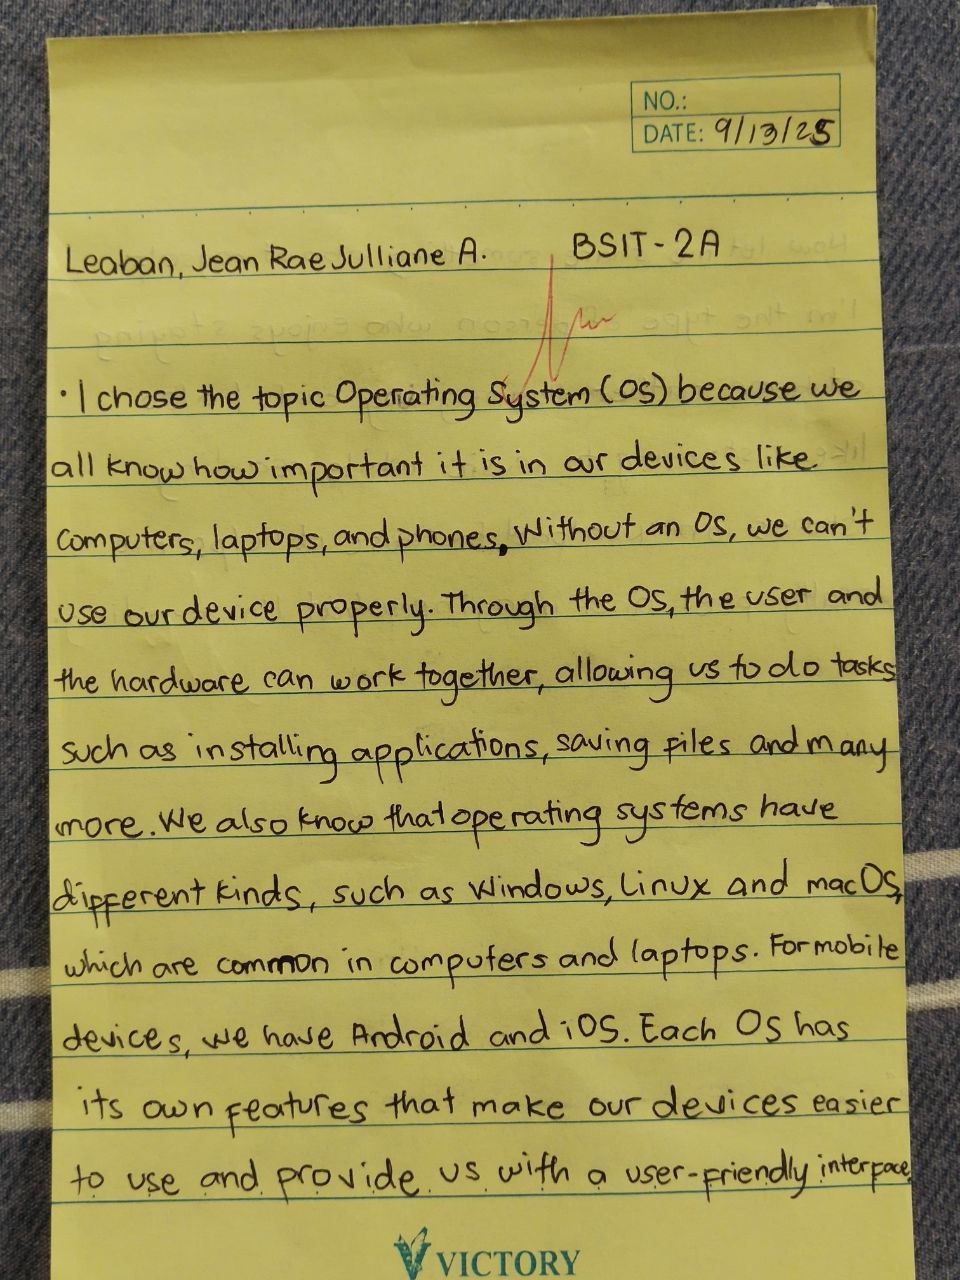 NO.:
DATE: 9/13/25
Leaban, Jean Rae Julliane A. BSIT-2A
• I chose the topic Operating System (OS) because we
all know how important it is in our devices like
computers, laptops, and phones, Without an OS, we can't
use our device properly. Through the OS, the user and
the hardware can work together, allowing us to do tasks
such as installing applications, saving files and many
more. We also know that operating systems have
different kinds, such as Windows, Linux and macOS,
which are common in computers and laptops. For mobile
devices, we have Android and iOS. Each OS has
its own features that make our devices easier
to use and provide us with a user-friendly interface
VICTORY